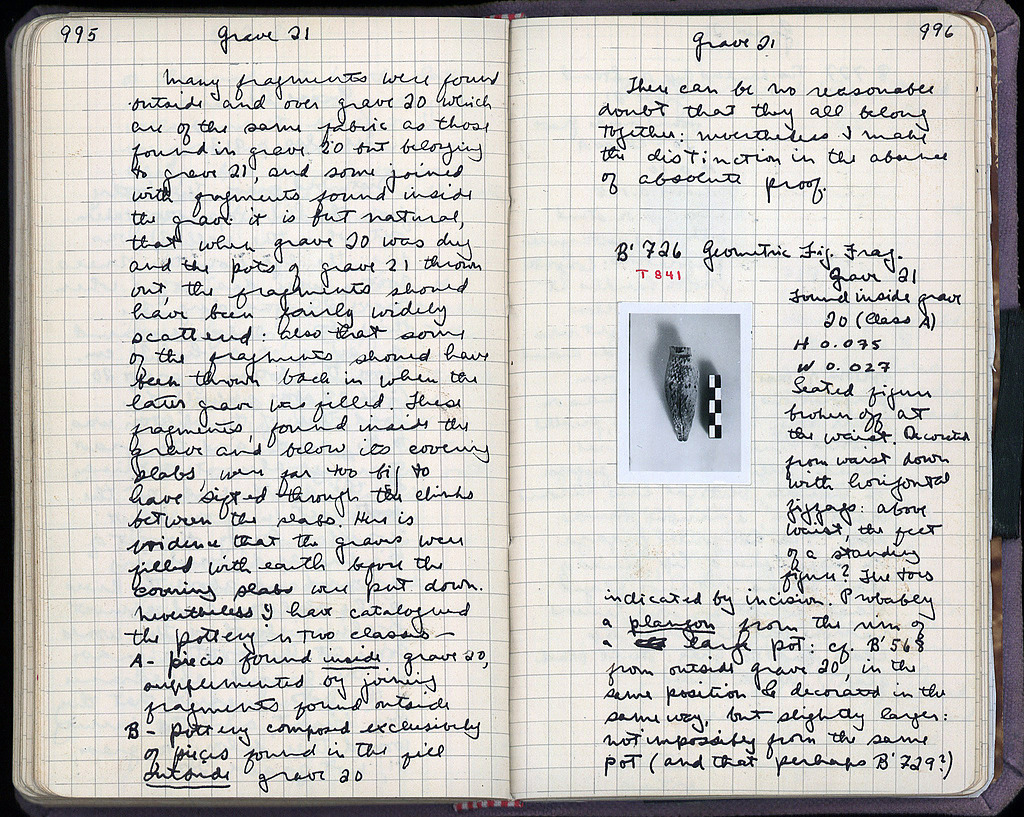 995
Grave 21
Many fragments were found
outside and over grave 20 which
are of the same fabric as those
found in grave 20 but belonging
to grave 21, and some joined
with fragments found inside
the grave. it is but natural,
that when grave 20 was dug
and the pots of grave 21 thrown
out, the fragments should
have been fairly widely
scattered: also that some
of the fragments should have
been thrown back in when the
later grave was filled. These
fragments, found inside the
grave and below its covering
slabs, were far too big to
have sifted through the chinks
between the slabs. Here is
evidence that the graves were
filled with earth before the
covering slabs were put down.
Nevertheless I have catalogued
the pottery in two classes —
A - pieces found inside grave 20,
supplemented by joining
fragments found outside
B - pottery composed exclusively
of pieces found in the fill
outside grave 20
996
Grave 21
There can be no reasonable
doubt that they all belong
together: nevertheless I make
the distinction in the absence
of absolute proof.
B' 726 Geometric Fig. Frag.
T 841
Grave 21
Found inside grave
20 (Class A)
H 0.075
W 0.027
Seated figure
broken off at
the waist. Decorated
from waist down
with horizontal
zigzags: above
waist, the feet
of a standing
figure? The toes
indicated by incision. Probably
a plangon from the rim of
a large pot: cf. B' 568
from outside grave 20, in the
same position & decorated in the
same way, but slightly larger:
not impossibly from the same
pot (and that perhaps B' 729?)